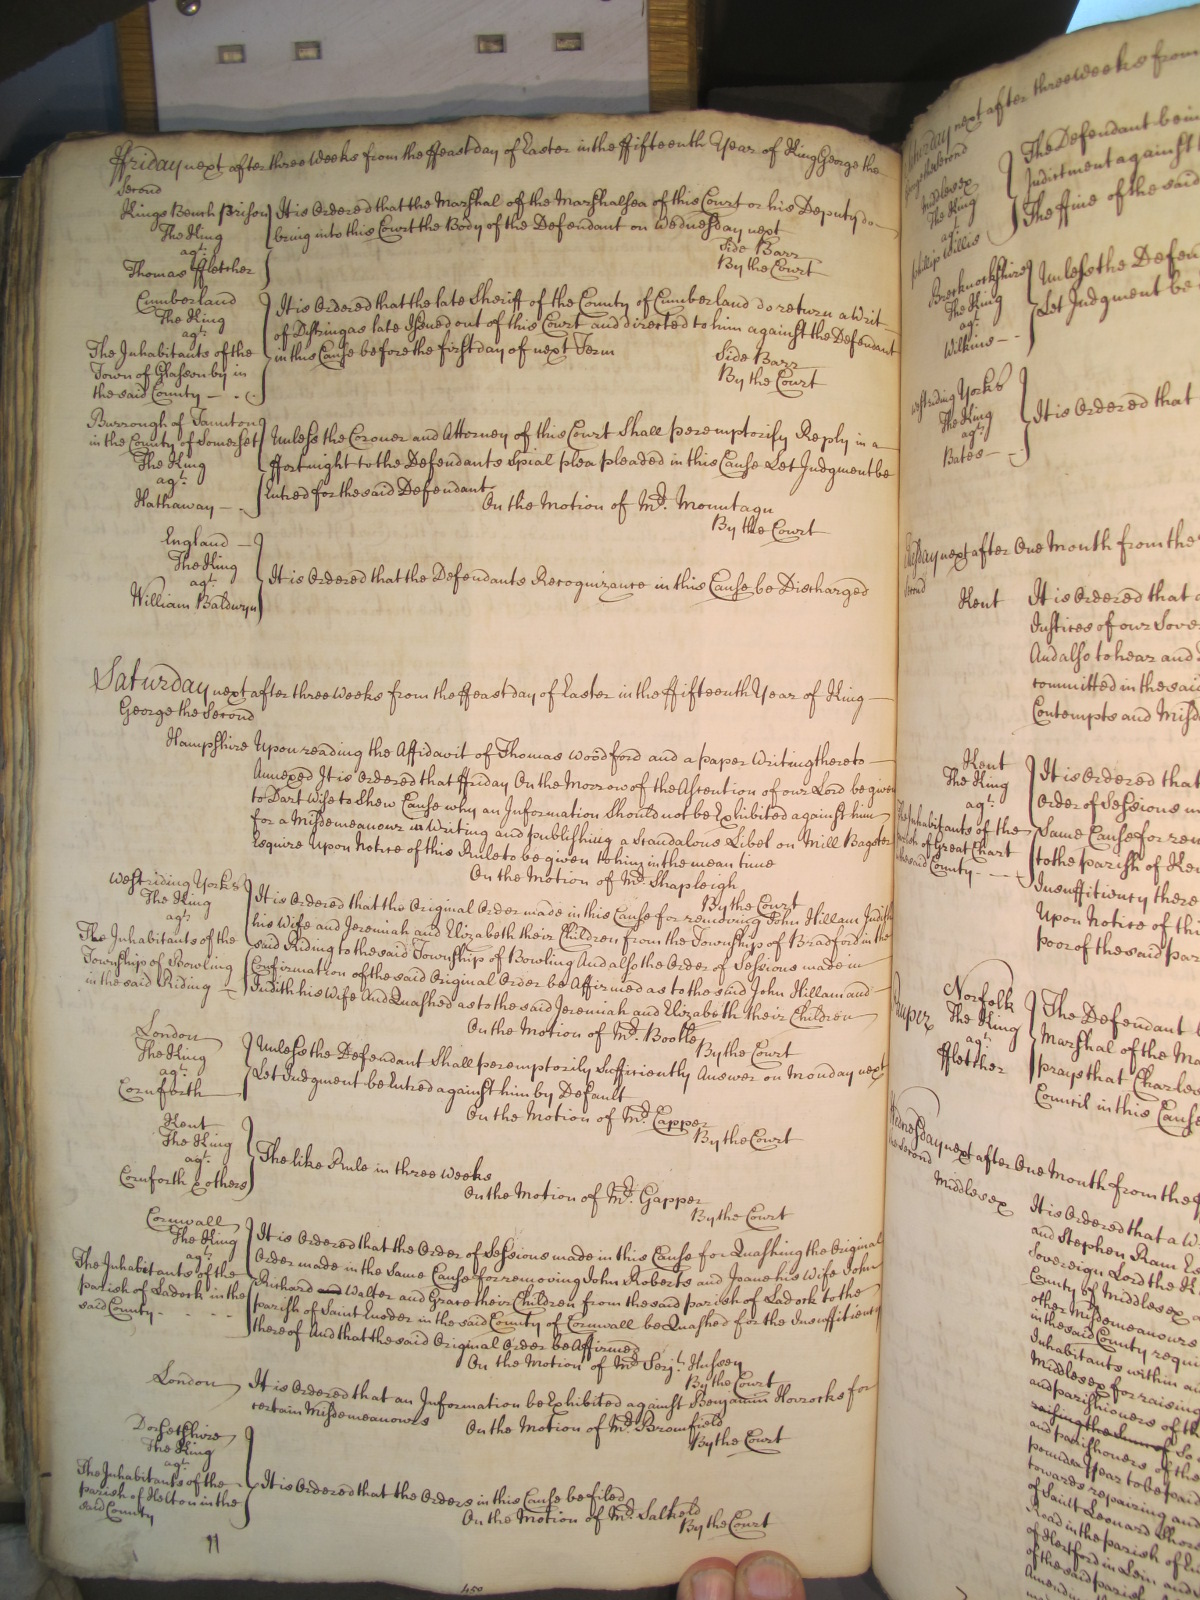 Ffriday next after three Weeks from the ffeast day of Easter in the ffifteenth Year of King George the
Second
Kings Bench Prison
The King
agt.
Thomas ffletcher
It is Ordered that the Marshal of the Marshalsea of this Court or his Deputy do
bring into this Court the Body of the Defendant on Wednesday next
Side Barr
By the Court
Cumberland
The King
agt.
The Inhabitants of the
Town of Glassonby in
the said County
It is Ordered that the late Sheriff of the County of Cumberland do return a Writ
of Distringas late Issued out of this Court and directed to him against the Defendant
in this Cause before the first day of next Term
Side Barr
By the Court
Burrough of Taunton
in the County of Somerset
The King
agt.
Hathaway
Unless the Coroner and Attorney of this Court Shall peremptorily Reply in a
ffortnight to the Defendants Spial plea pleaded in this Cause Let Judgment be
Entred for the said Defendant
On the Motion of Mr. Mountagu
By the Court
England
The King
agt.
William Baldwyn
It is Ordered that the Defendants Recognizance in this Cause be Discharged
Saturday next after three Weeks from the ffeast day of Easter in the ffifteenth Year of King
George the Second
Hampshire Upon reading the Affidavit of Thomas Woodford and a paper Writing thereto
Annexed It is Ordered that ffriday On the Morrow of the Ascention of our Lord be given
to Dart Wife to Shew Cause why an Information Should not be Exhibited against him
for a Misdemeanour in Writing and publishing a Scandalous Libel on Mill Bagster
Esquire Upon Notice of this Rule to be given to him in the mean time
On the Motion of Mr. Shapleigh
By the Court
West riding Yorks
The King
agt.
The Inhabitants of the
Township of Bowling
in the said Riding
It is Ordered that the Original Order made in this Cause for removing John Hillam Judith
his Wife and Jeremiah and Elizabeth their Children from the Township of Bradford in the
said Riding to the said Township of Bowling And also the Order of Sessions made in
Confirmation of the said Original Order be Affirmed as to the said John Hillam and
Judith his Wife And Quashed as to the said Jeremiah and Elizabeth their Children
On the Motion of Mr. Bootle
By the Court
London
The King
agt.
Cornforth
Unless the Defendant Shall peremptorily Sufficiently Answer on Monday next
Let Judgment be Entred against him by Default
On the Motion of Mr. Capper
By the Court
Kent
The King
agt.
Cornforth & others
The like Rule in three Weeks
On the Motion of Mr. Gapper
By the Court
Cornwall
The King
agt.
The Inhabitants of the
parish of Ladock in the
said County
It is Ordered that the Order of Sessions made in this Cause for Quashing the Original
Order made in the Same Cause for removing John Roberts and Joane his Wife John
Richard Walter and Grace their Children from the said parish of Ladock to the
parish of Saint Eneder in the said County of Cornwall be Quashed for the Insufficiency
thereof And that the said Original Order be Affirmed
On the Motion of Mr. Serjt. Hussey
By the Court
London
It is Ordered that an Information be Exhibited against Benjamin Horrocks for
certain Misdemeanours
On the Motion of Mr. Bromfield
By the Court
Dorsetshire
The King
agt.
The Inhabitants of the
parish of Helton in the
said County
It is Ordered that the Orders in this Cause be filed
On the Motion of Mr. Salkeld
By the Court
450
Saturday next after three weeks from
George the Second
Middlesex
The King
agt.
phillip Willis
The Defendant bein
Indictment against
The ffine of the said
Brecknockshire
The King
agt.
Wilkins
Unless the Defen
Let Judgment be
West riding Yorks
The King
agt.
Bates
It is Ordered that
next after One Month from the
Second
Kent
It is Ordered that
Justices of our Sove
And also to hear and
committed in the sai
Contempts and Misd
Kent
The King
agt.
The Inhabitants of the
parish of Great Chart
in the said County
It is Ordered that
Order of Sessions m
Same Cause for rem
to the parish of Ken
Insufficiency there
Upon Notice of thi
poor of the said par
Norfolk
The King
agt.
ffletcher
The Defendant
Marshal of the Ma
prays that Charles
Council in this Cause
Wednesday next after One Month from the
the Second
Middlesex
It is Ordered that a W
and Stephen Ram Es
Sovereign Lord the K
County of Middlesex
other Misdemeanours
in the said County requi
Inhabitants within
Middlesex for raising
and parishioners of th
raising the Sum of So
and parishoners of the
pounds a Year to be paid
towards repairing and
of Saint Leonard Shore
Road in the parish of
of Hertford in
of the said parish